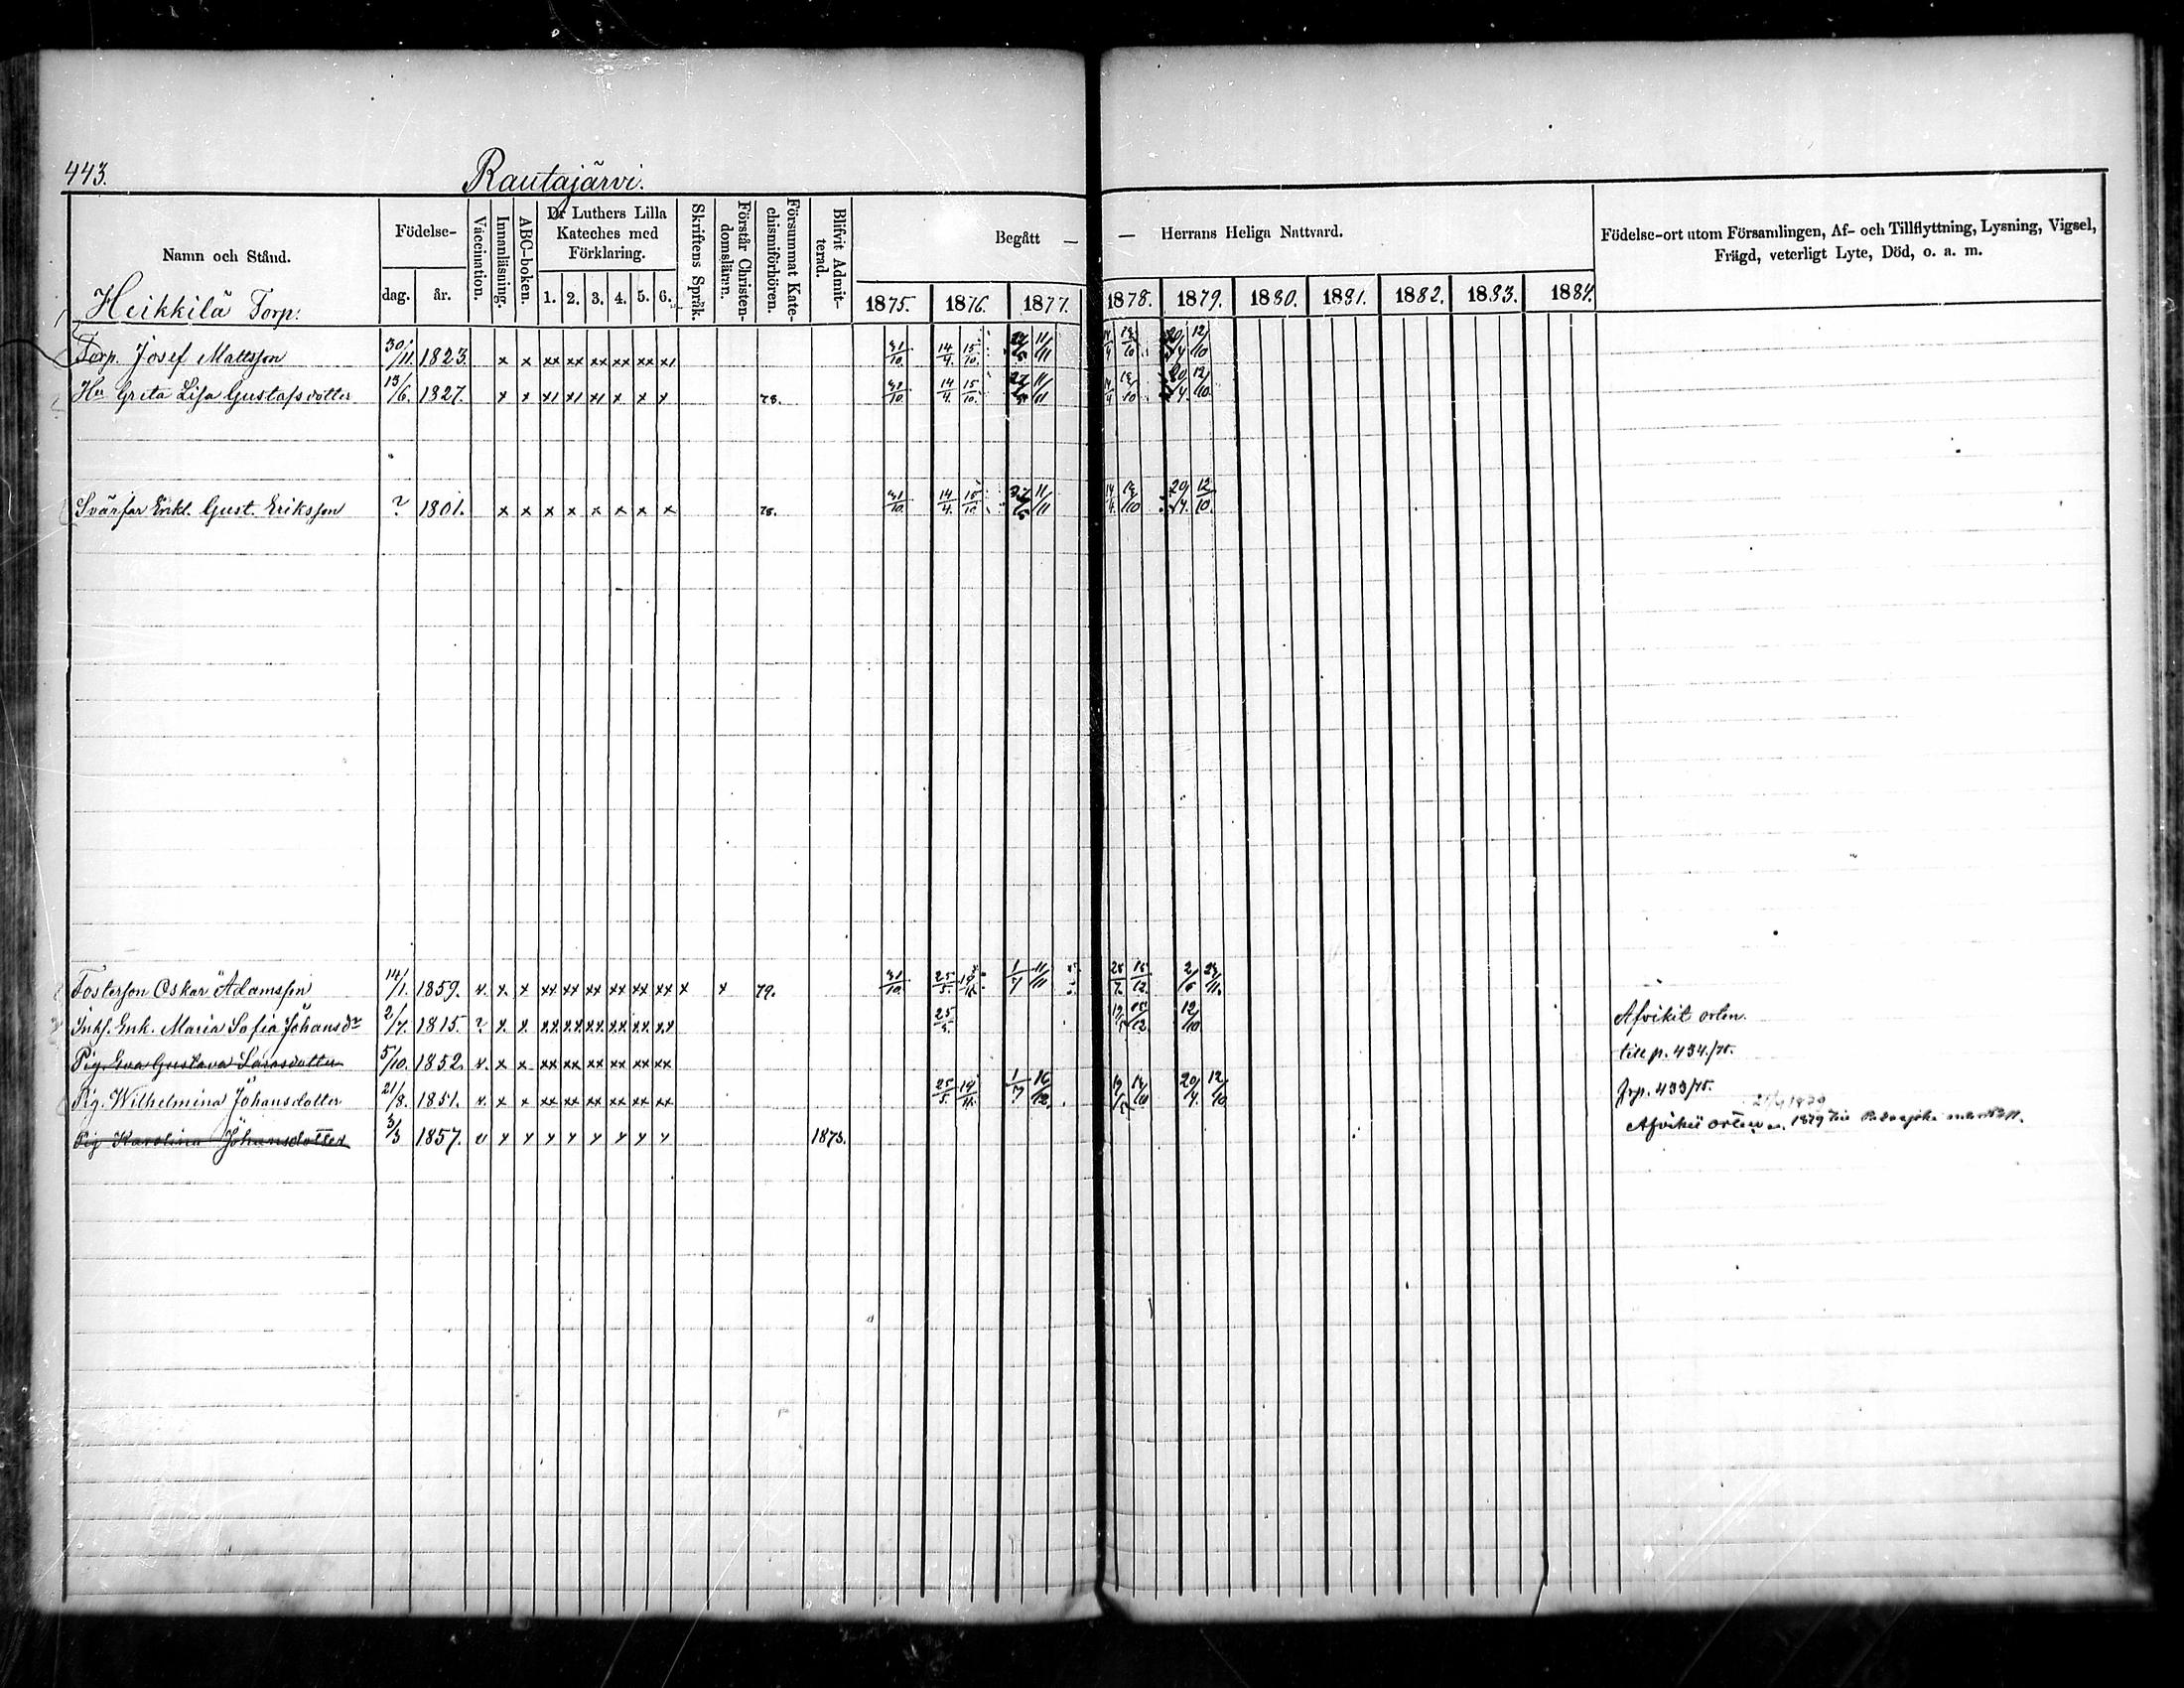 443. Rautajärvi.
Namn och Stånd. Födelse- dag. år. Vaccination. Innanläsning. ABC-boken. Dr Luthers Lilla Kateches med Förklaring. 1. 2. 3. 4. 5. 6. Skriftens Språk. Förstår Christendomslärán. Försummat Katechismiförhören. Blifvit Admitterad. Begått — — Herrans Heliga Nattvard. 1875. 1876. 1877. 1878. 1879. 1880. 1881. 1882. 1883. 1884. Födelse-ort utom Församlingen, Af- och Tillflyttning, Lysning, Vigsel, Frägd, veterligt Lyte, Död, o. a. m.
Heikkilä Torp.
Torp. Josef Mattsson 30/11. 1823. x x xx xx xx xx xx x1 31/10 14/4 15/10 11/11 14/4 20/4 12/10
Hu Greta Lisa Gustafsdotter 13/6. 1827. x x x1 x1 x1 x x x 78. 31/10 14/4. 15/10. 11/11 14/4 20/4. 12/10.
Svärfar Enkl. Gust. Eriksson ? 1801. x x x x x x x x 78. 31/10. 14/4. 15/10 11/11 14/4. 20/4. 12/10.
Fosterson Oskar Adamsson 14/1. 1859. v. x x xx xx xx xx xx xx x x 79. 31/10. 25/5. 1/7 11/11
Inhs. Enk. Maria Sofia Johansdr 2/7. 1815. ? x x xx xx xx xx xx xx 25/5. 12/10 Afvikit orten.
Pig. Eva Gustava Larsdotter 5/10. 1852. v. x x xx xx xx xx xx xx till p. 434./75.
Pig. Wilhelmina Johansdotter 21/8. 1851. v. x x xx xx xx xx xx xx 25/5. 1/7 16/12. 20/4. 12/10 frp. 433/75.
Pig Karolina Johansdotter 3/3 1857. v x x x x x x x x 1873. Afvikit orten 1879